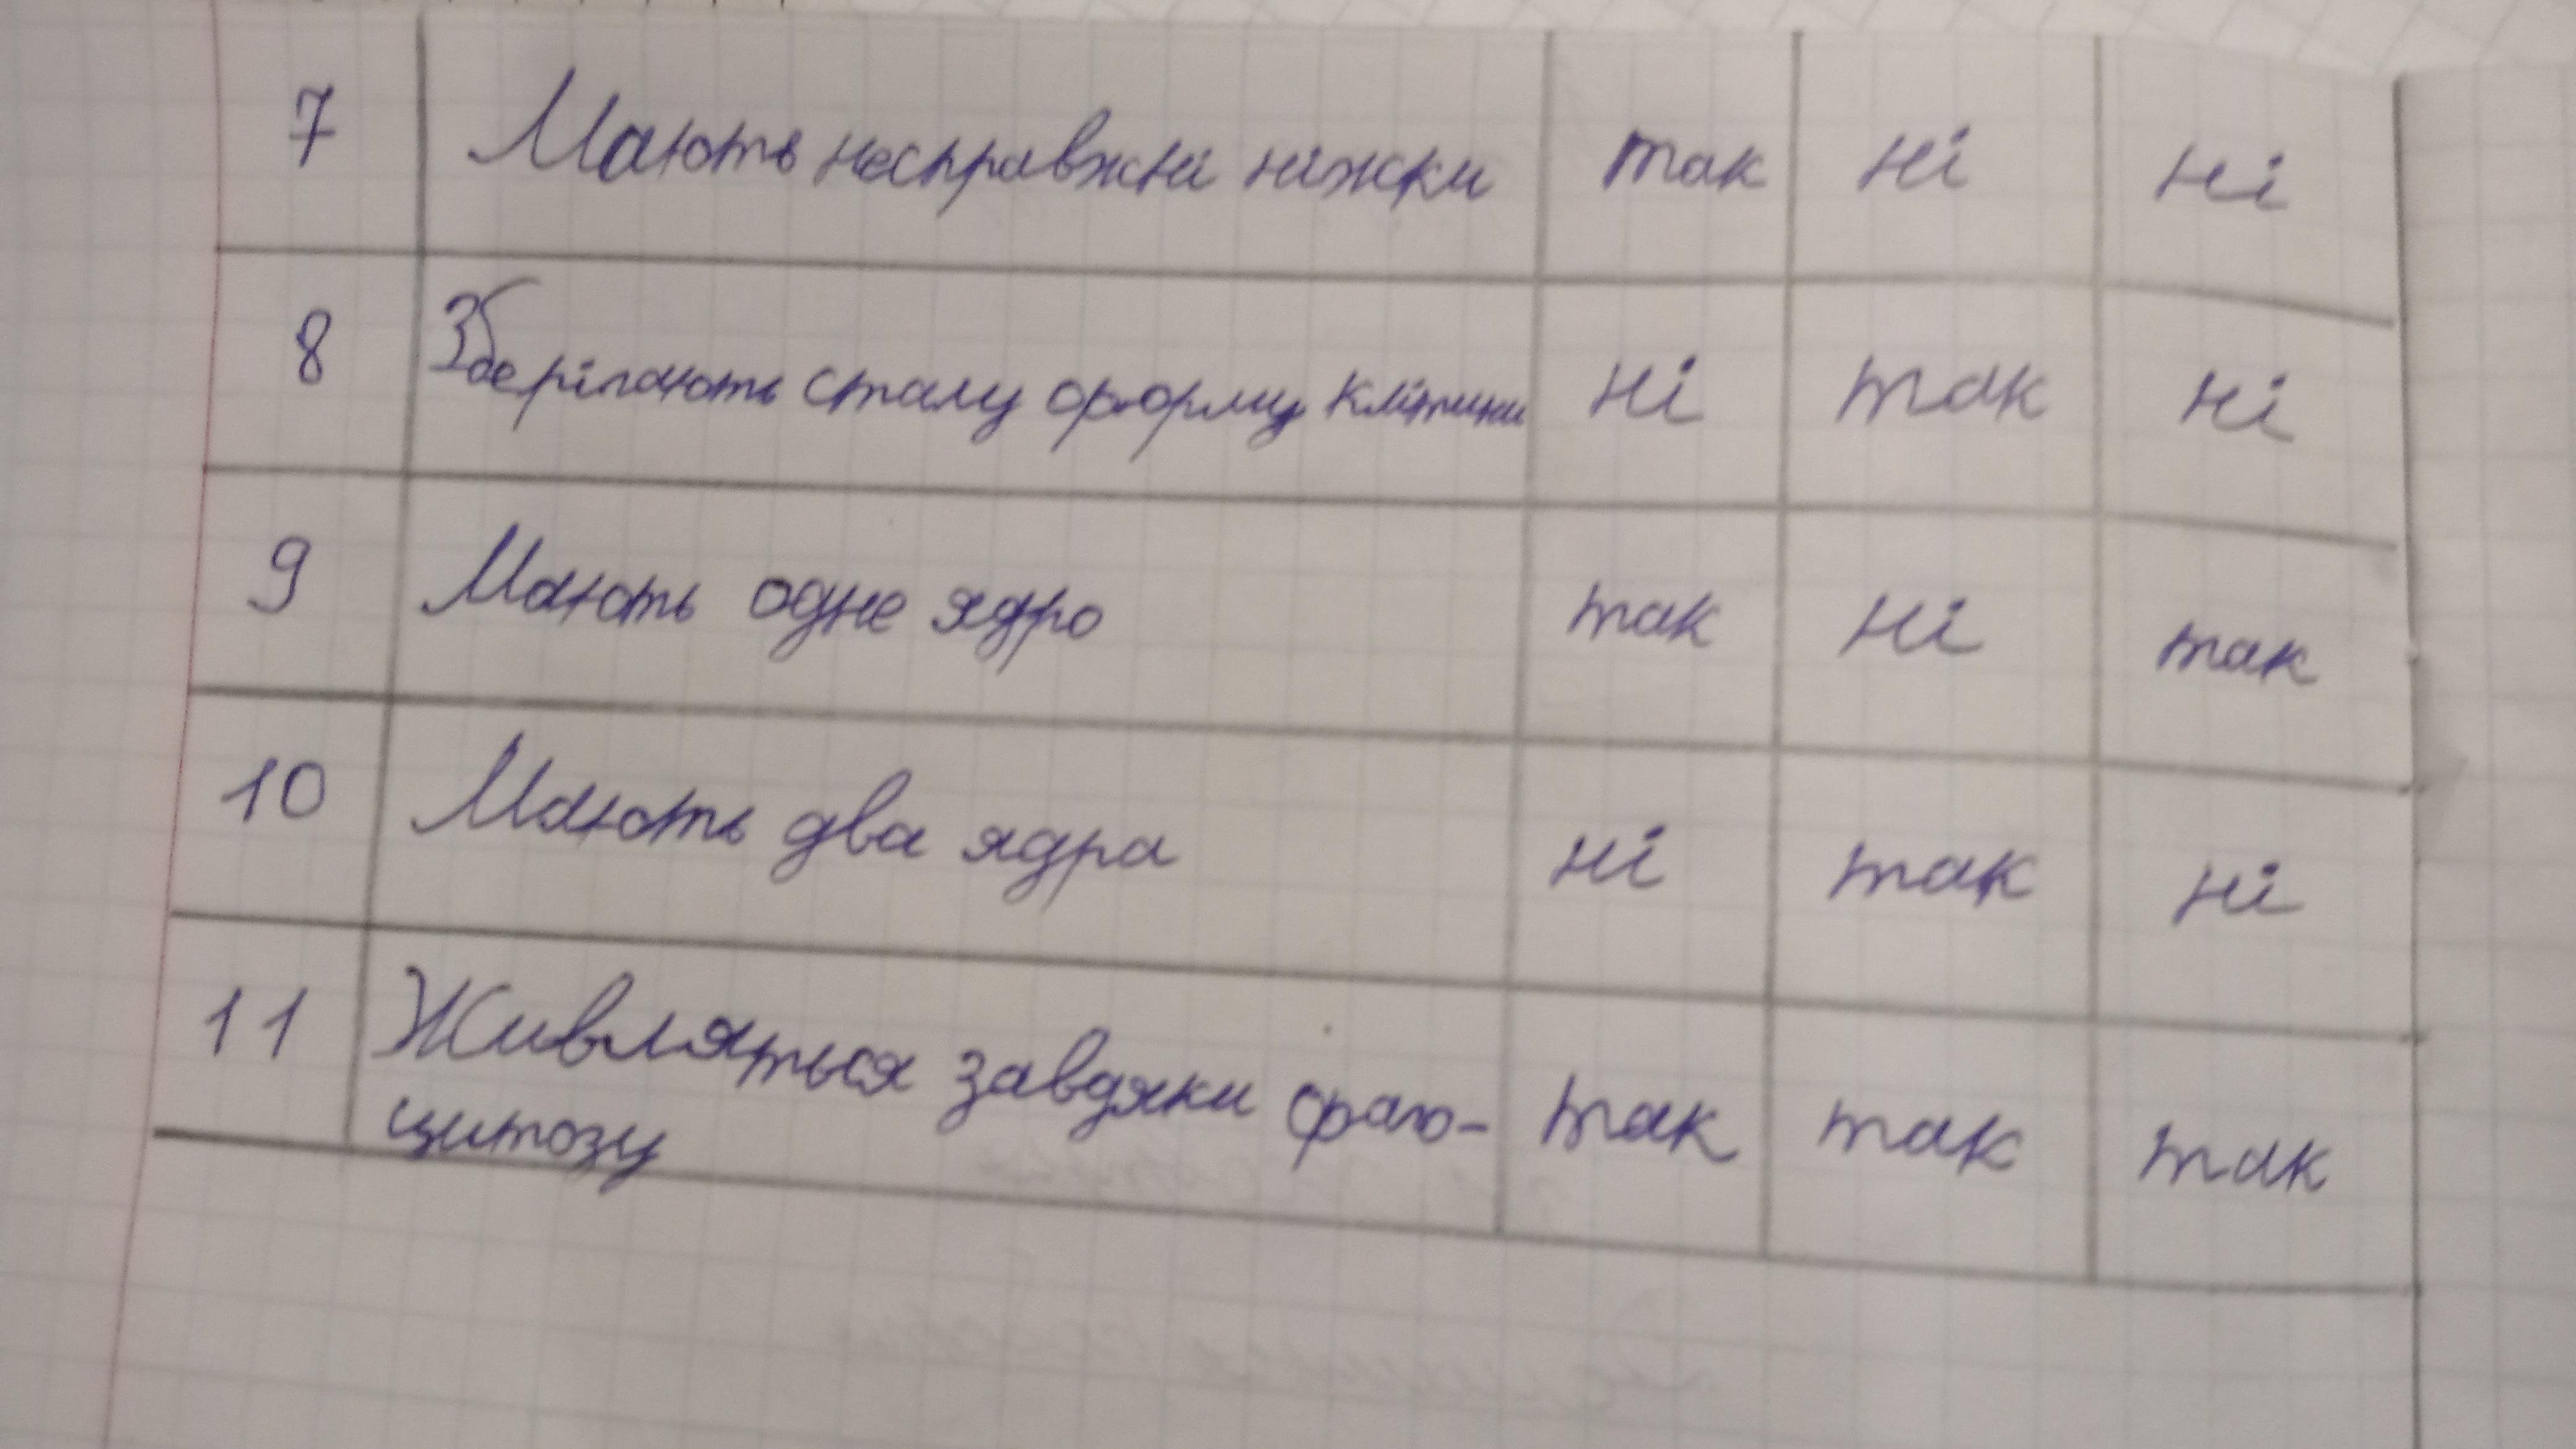 7 Мають несправжні ніжки так ні ні
8 Зберігають сталу форму клітини ні так ні
9 Мають одне ядро так ні так
10 Мають два ядра ні так ні
11 Живляться завдяки фаго- так так так
цитозу